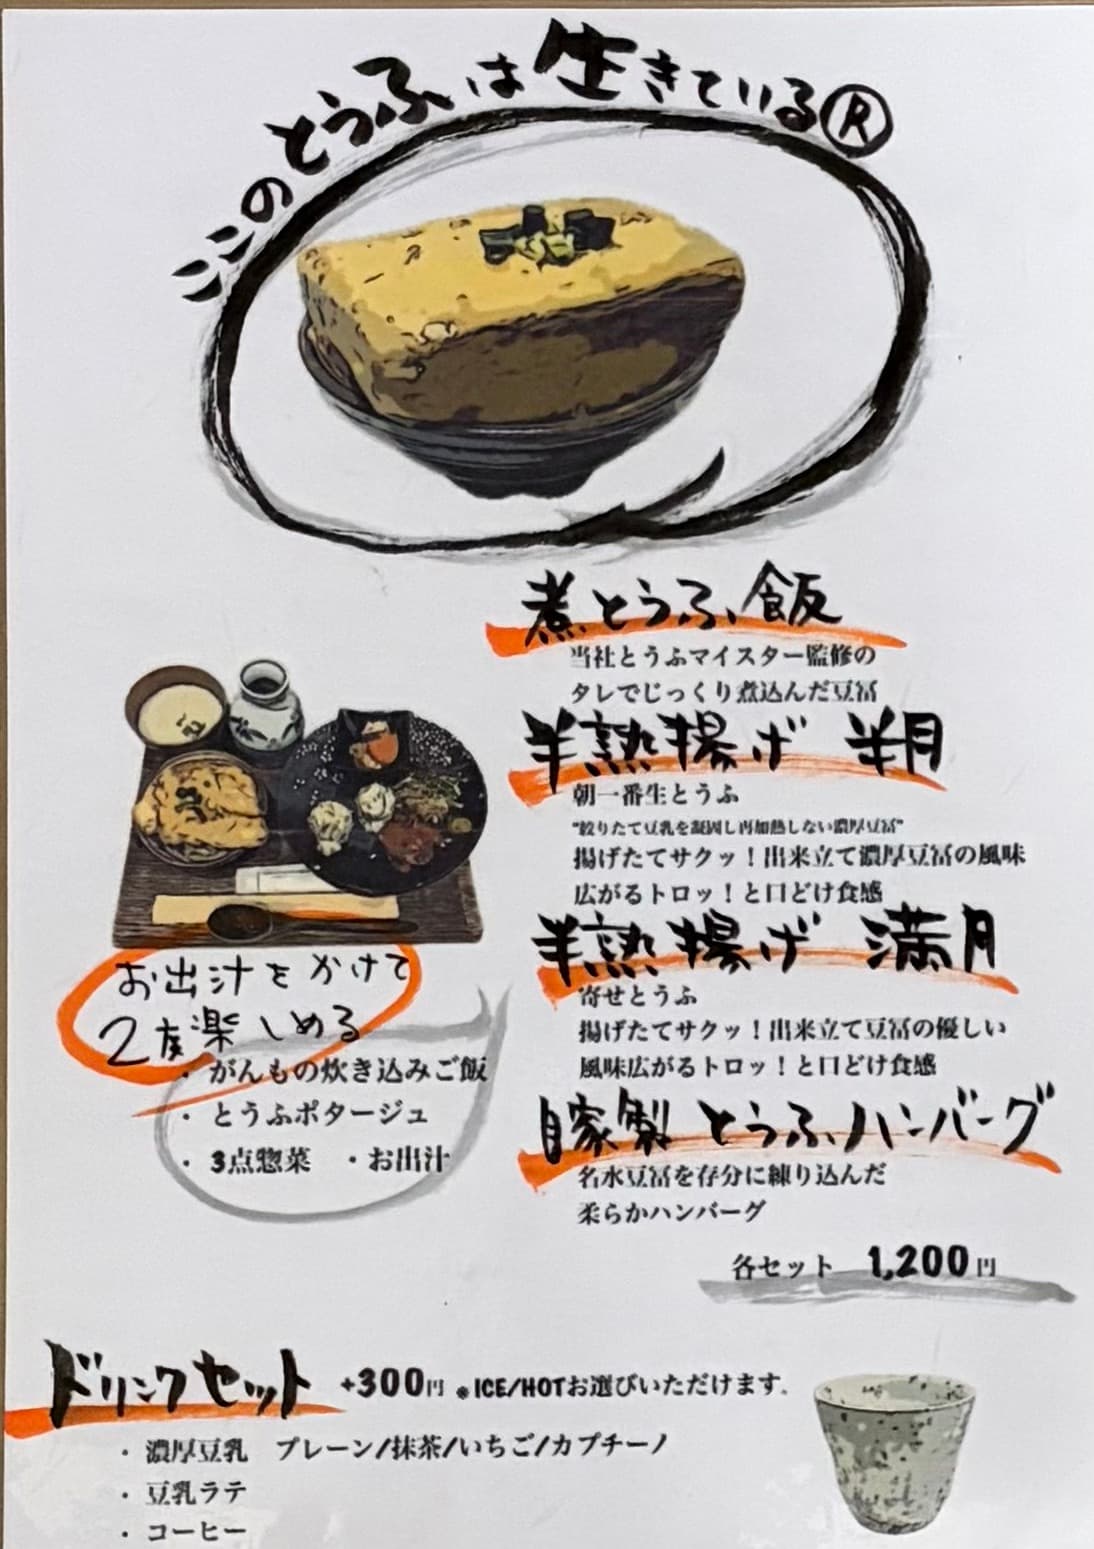 ここのとうふは生きている®
煮とうふ飯
当社とうふマイスター監修の
タレでじっくり煮込んだ豆冨
半熟揚げ 朔月
朝一番生とうふ
"絞りたて豆乳を凝固し再加熱しない濃厚豆冨"
揚げたてサクッ!出来立て濃厚豆冨の風味
広がるトロッ!と口どけ食感
半熟揚げ 満月
寄せとうふ
揚げたてサクッ!出来立て豆冨の優しい
風味広がるトロッ!と口どけ食感
自家製 とうふハンバーグ
名水豆冨を存分に練り込んだ
柔らかハンバーグ
各セット 1,200円
お出汁をかけて
2度楽しめる
・がんもの炊き込みご飯
・とうふポタージュ
・3点惣菜 ・お出汁
ドリンクセット +300円 ※ICE/HOTお選びいただけます。
・濃厚豆乳 プレーン/抹茶/いちご/カプチーノ
・豆乳ラテ
・コーヒー